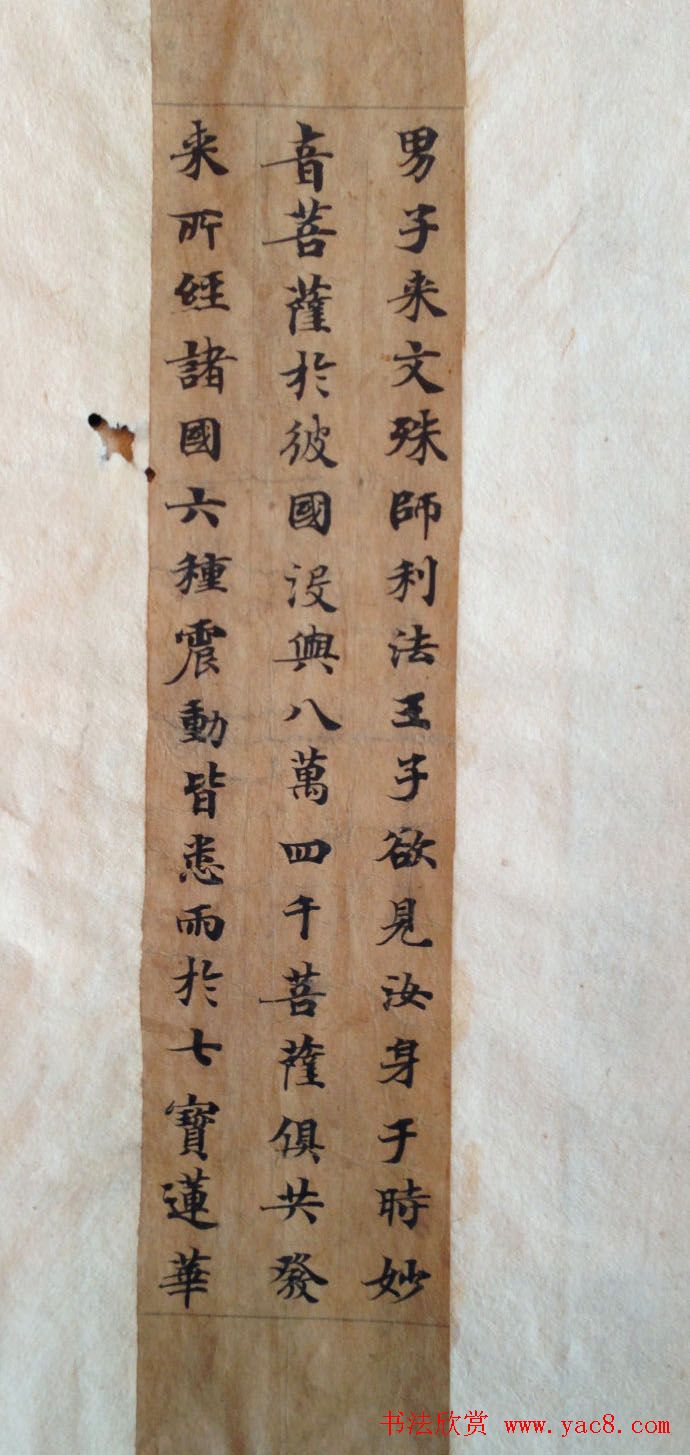 男子来文殊師利法王子欲見汝身于時妙
音菩薩於彼國沒與八萬四千菩薩俱共發
来所經諸國六種震動皆悉雨於七寶蓮華
书法欣赏 www.yac8.com